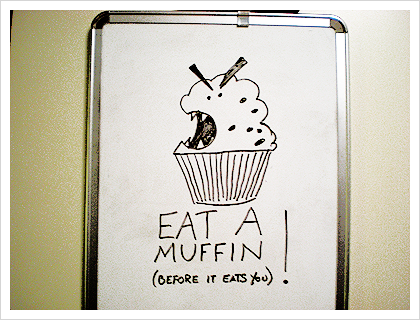 EAT A
MUFFIN
(BEFORE IT EATS YOU) !